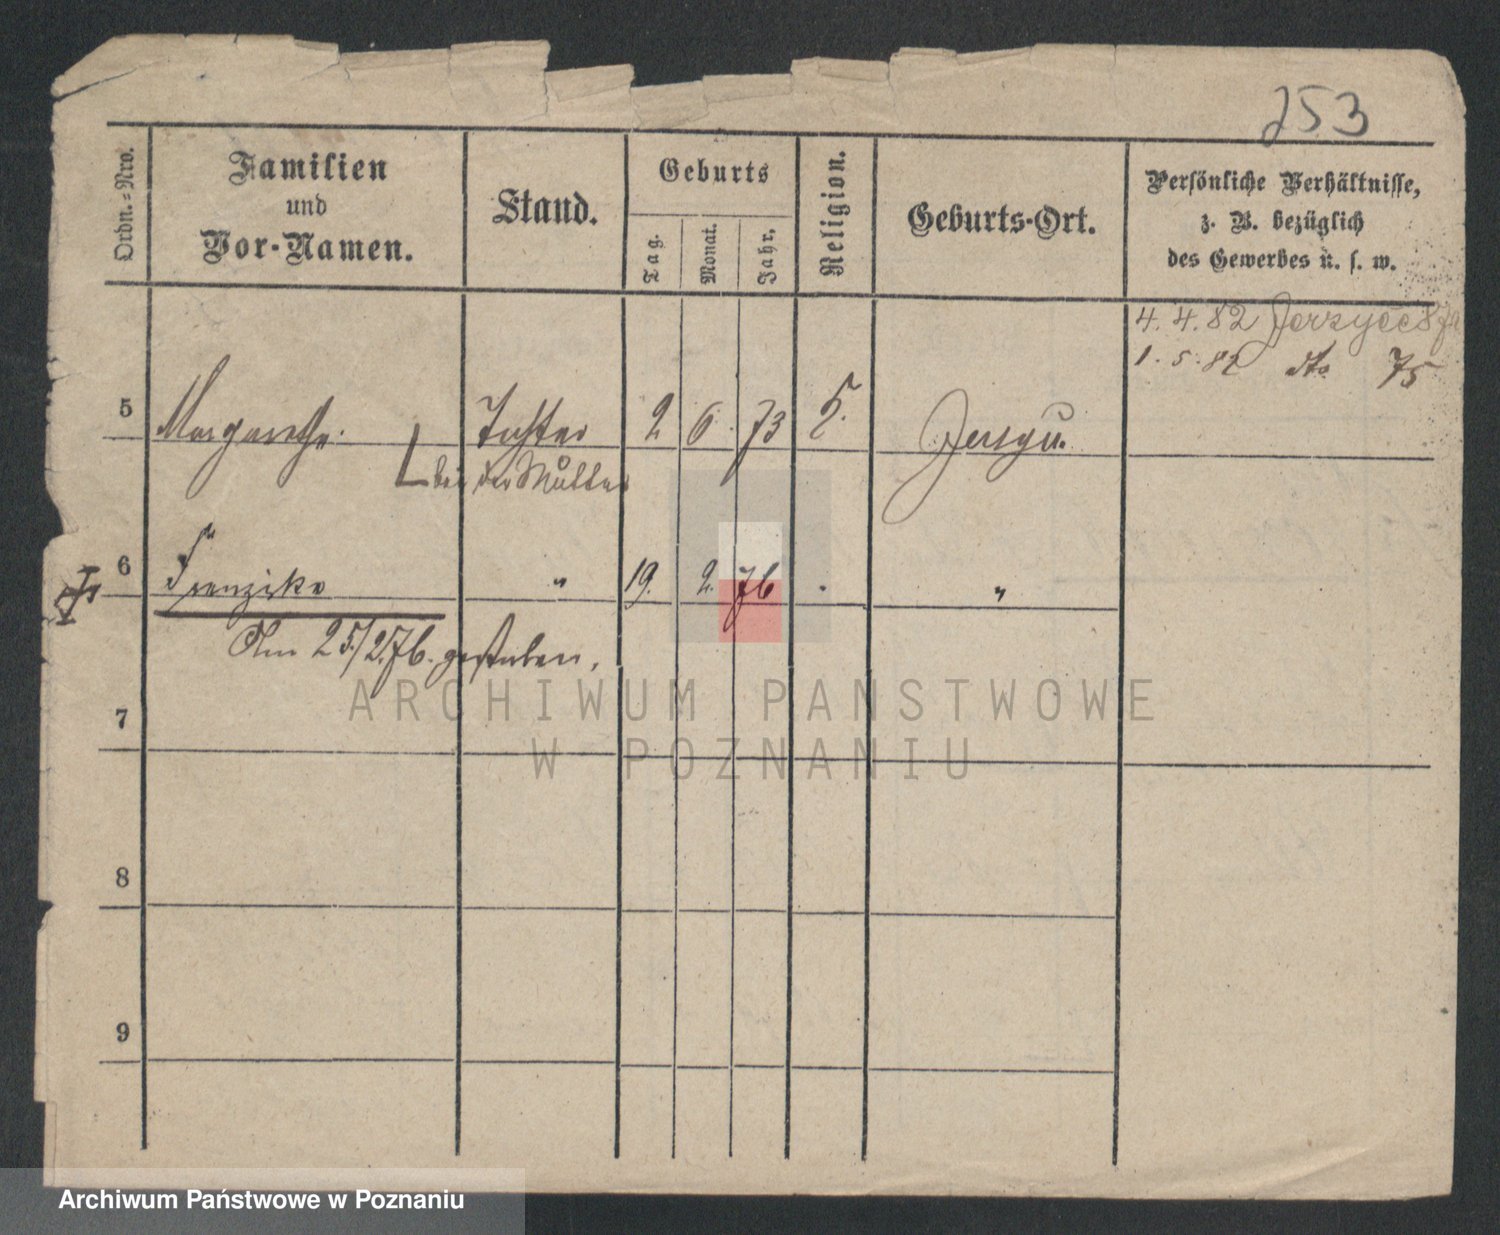 253
Ordn.=Nro.
Familien
und
Vor-Namen.
Stand.
Geburts
Tag.
Monat.
Jahr.
Religion.
Geburts-Ort.
Persönliche Verhältnisse,
z. B. bezüglich
des Gewerbes u. s. w.
4. 4. 82 Jerzyce
1. 5. 82 dto 75
5 Margarethe Tochter 2 6. 73
bei der Mutter
6 Franziska " 19. 2. 76 "
Am 25./2.76. gestorben.
7
8
9
ARCHIWUM PANSTWOWE
W POZNANIU
Archiwum Państwowe w Poznaniu